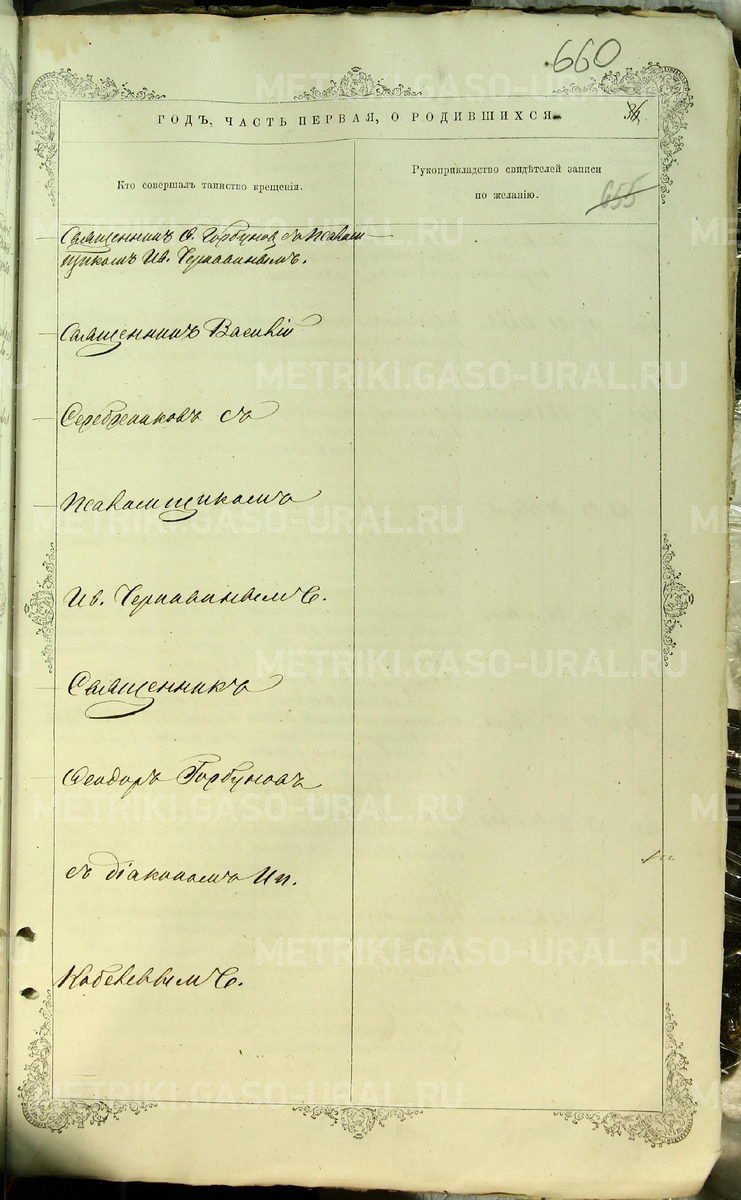 660
ГОДЪ, ЧАСТЬ ПЕРВАЯ, О РОДИВШИХСЯ.
36
Кто совершалъ таинство крещенія.
Рукоприкладство свидѣтелей записи
по желанію.
655
Священникъ Ѳ. Горбуновъ съ Псалом-
щикомъ Ив. Чернавинымъ.
Священникъ Василій
Серебрениковъ съ
Псаломщикомъ
Ив. Чернавинымъ.
Священникъ
Ѳеодоръ Горбуновъ
съ діакономъ Ип.
Кобелевымъ.
METRIKI.GASO-URAL.RU